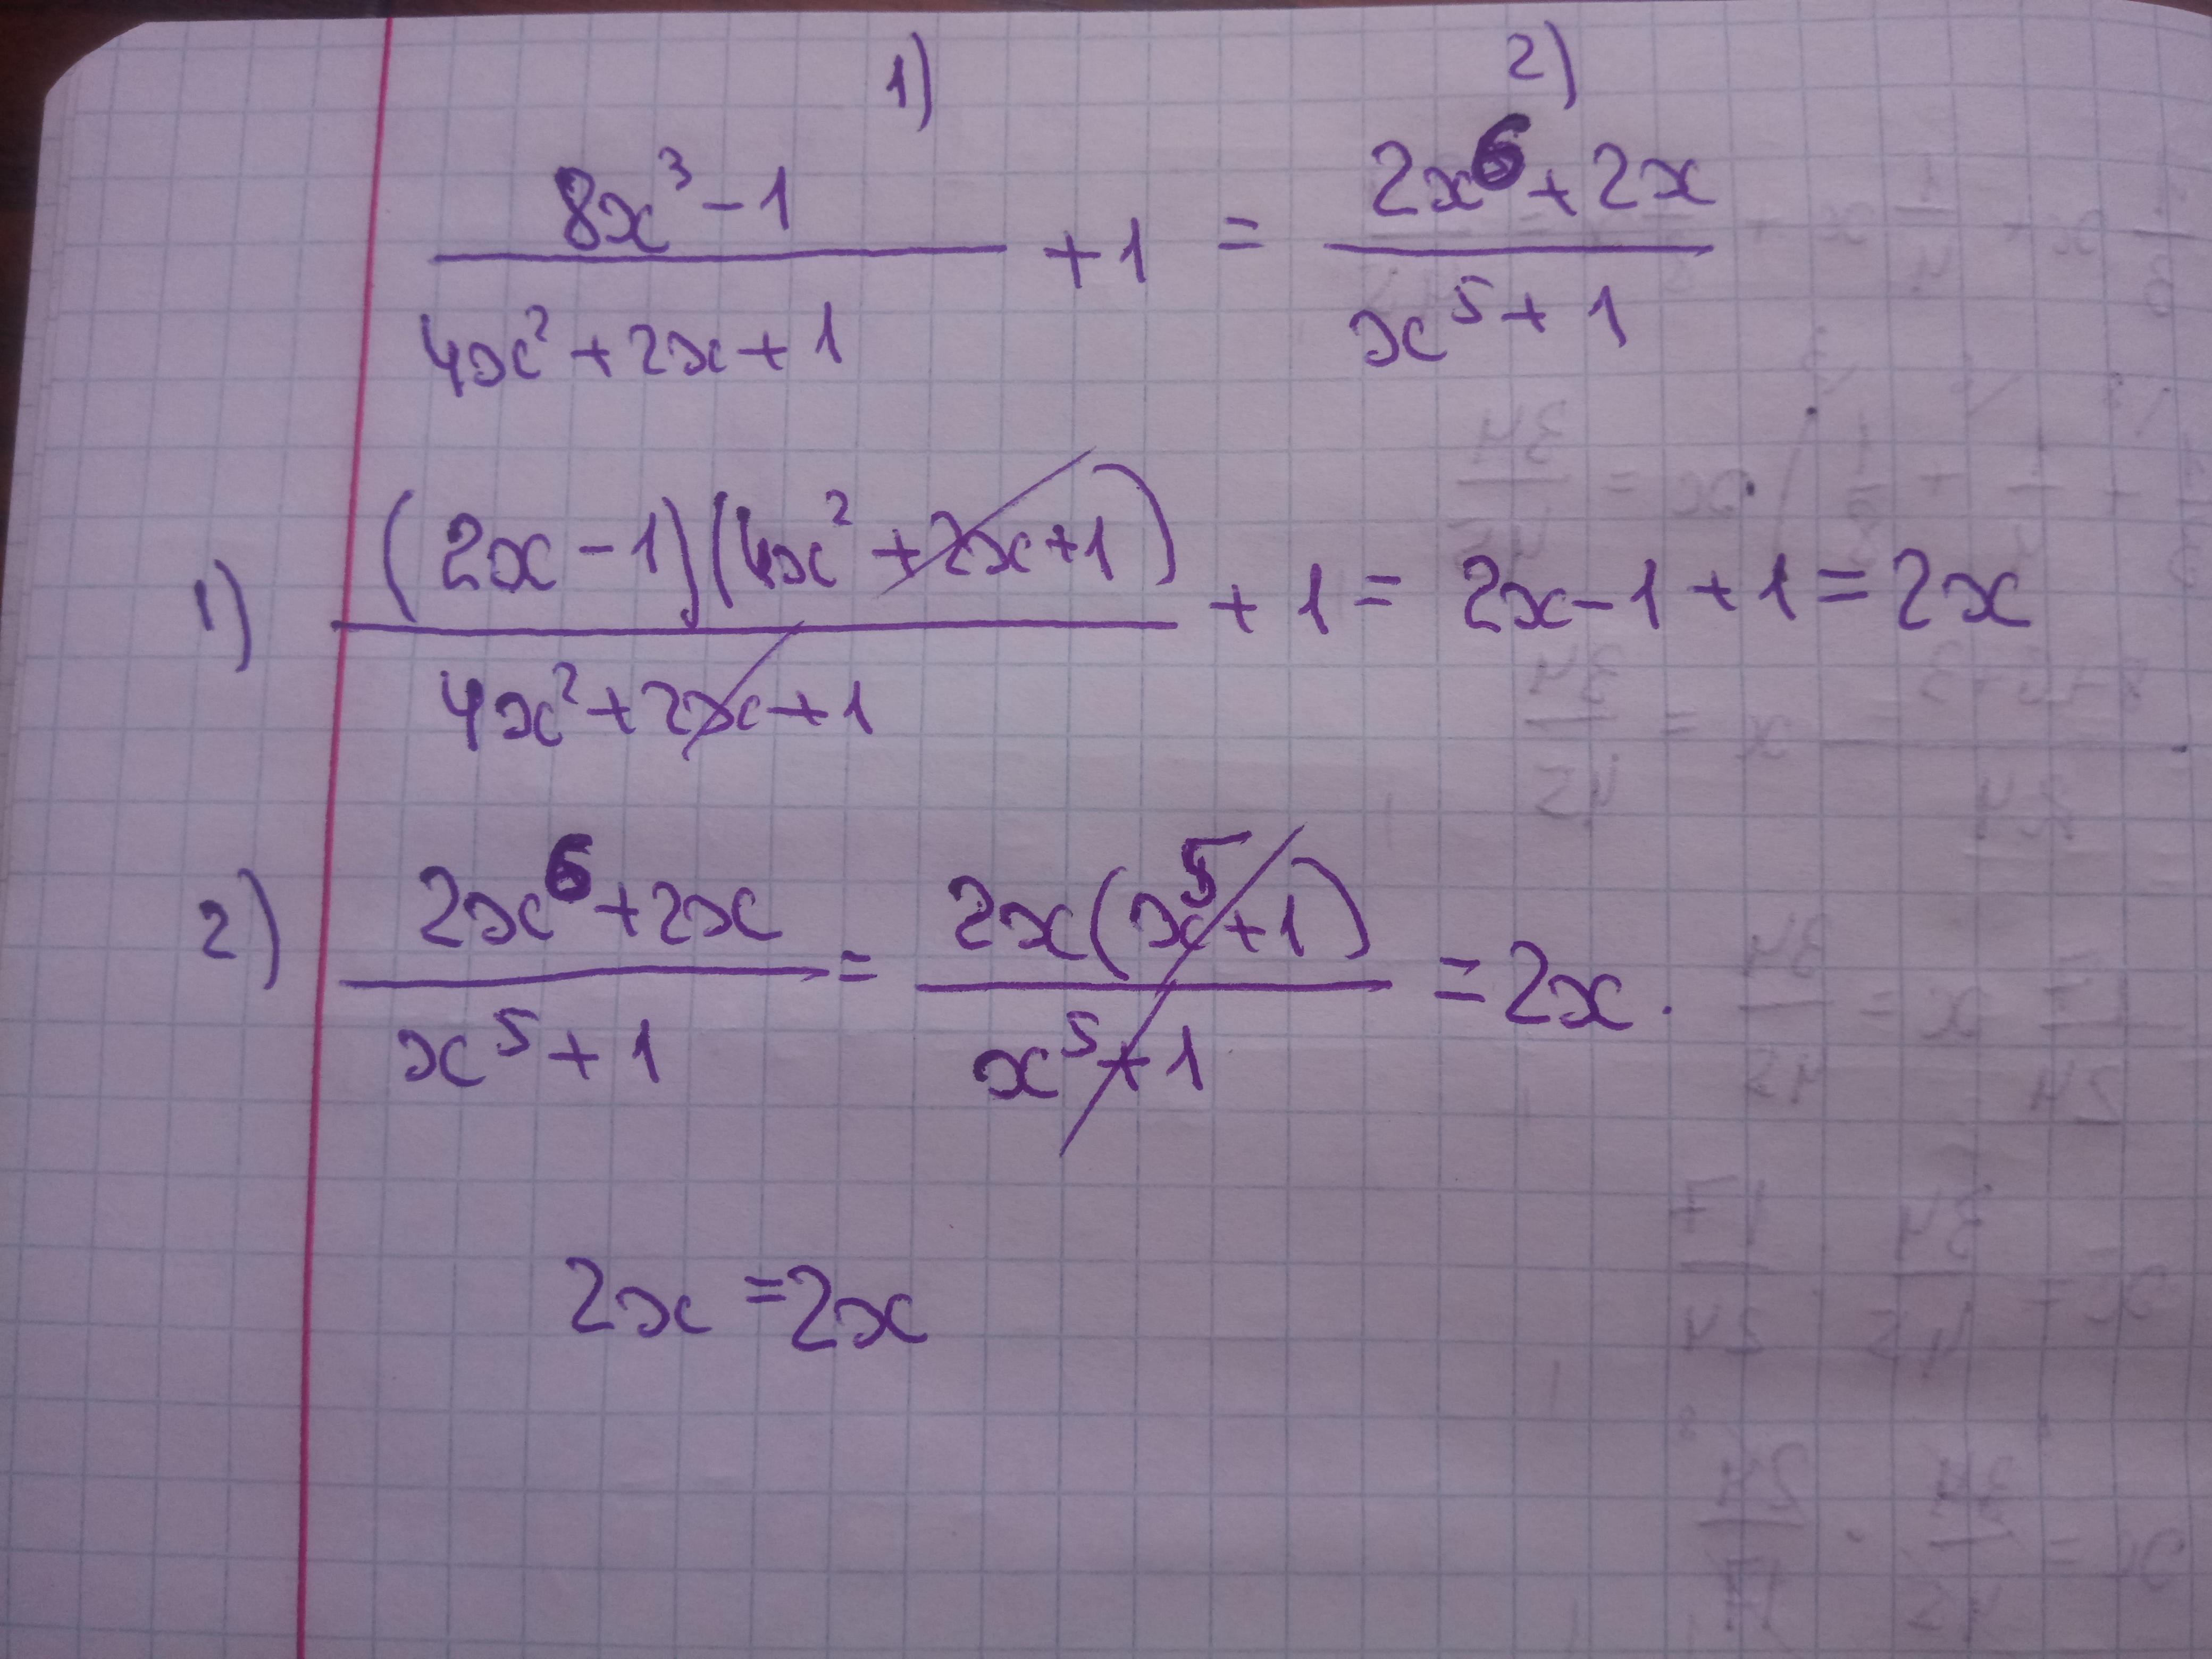 1) 2)
(8x³ - 1)/(4x² + 2x + 1) + 1 = (2x⁶ + 2x)/(x⁵ + 1)
1) ((2x - 1)(4x² + 2x + 1))/(4x² + 2x + 1) + 1 = 2x - 1 + 1 = 2x
2) (2x⁶ + 2x)/(x⁵ + 1) = (2x(x⁵ + 1))/(x⁵ + 1) = 2x.
2x = 2x